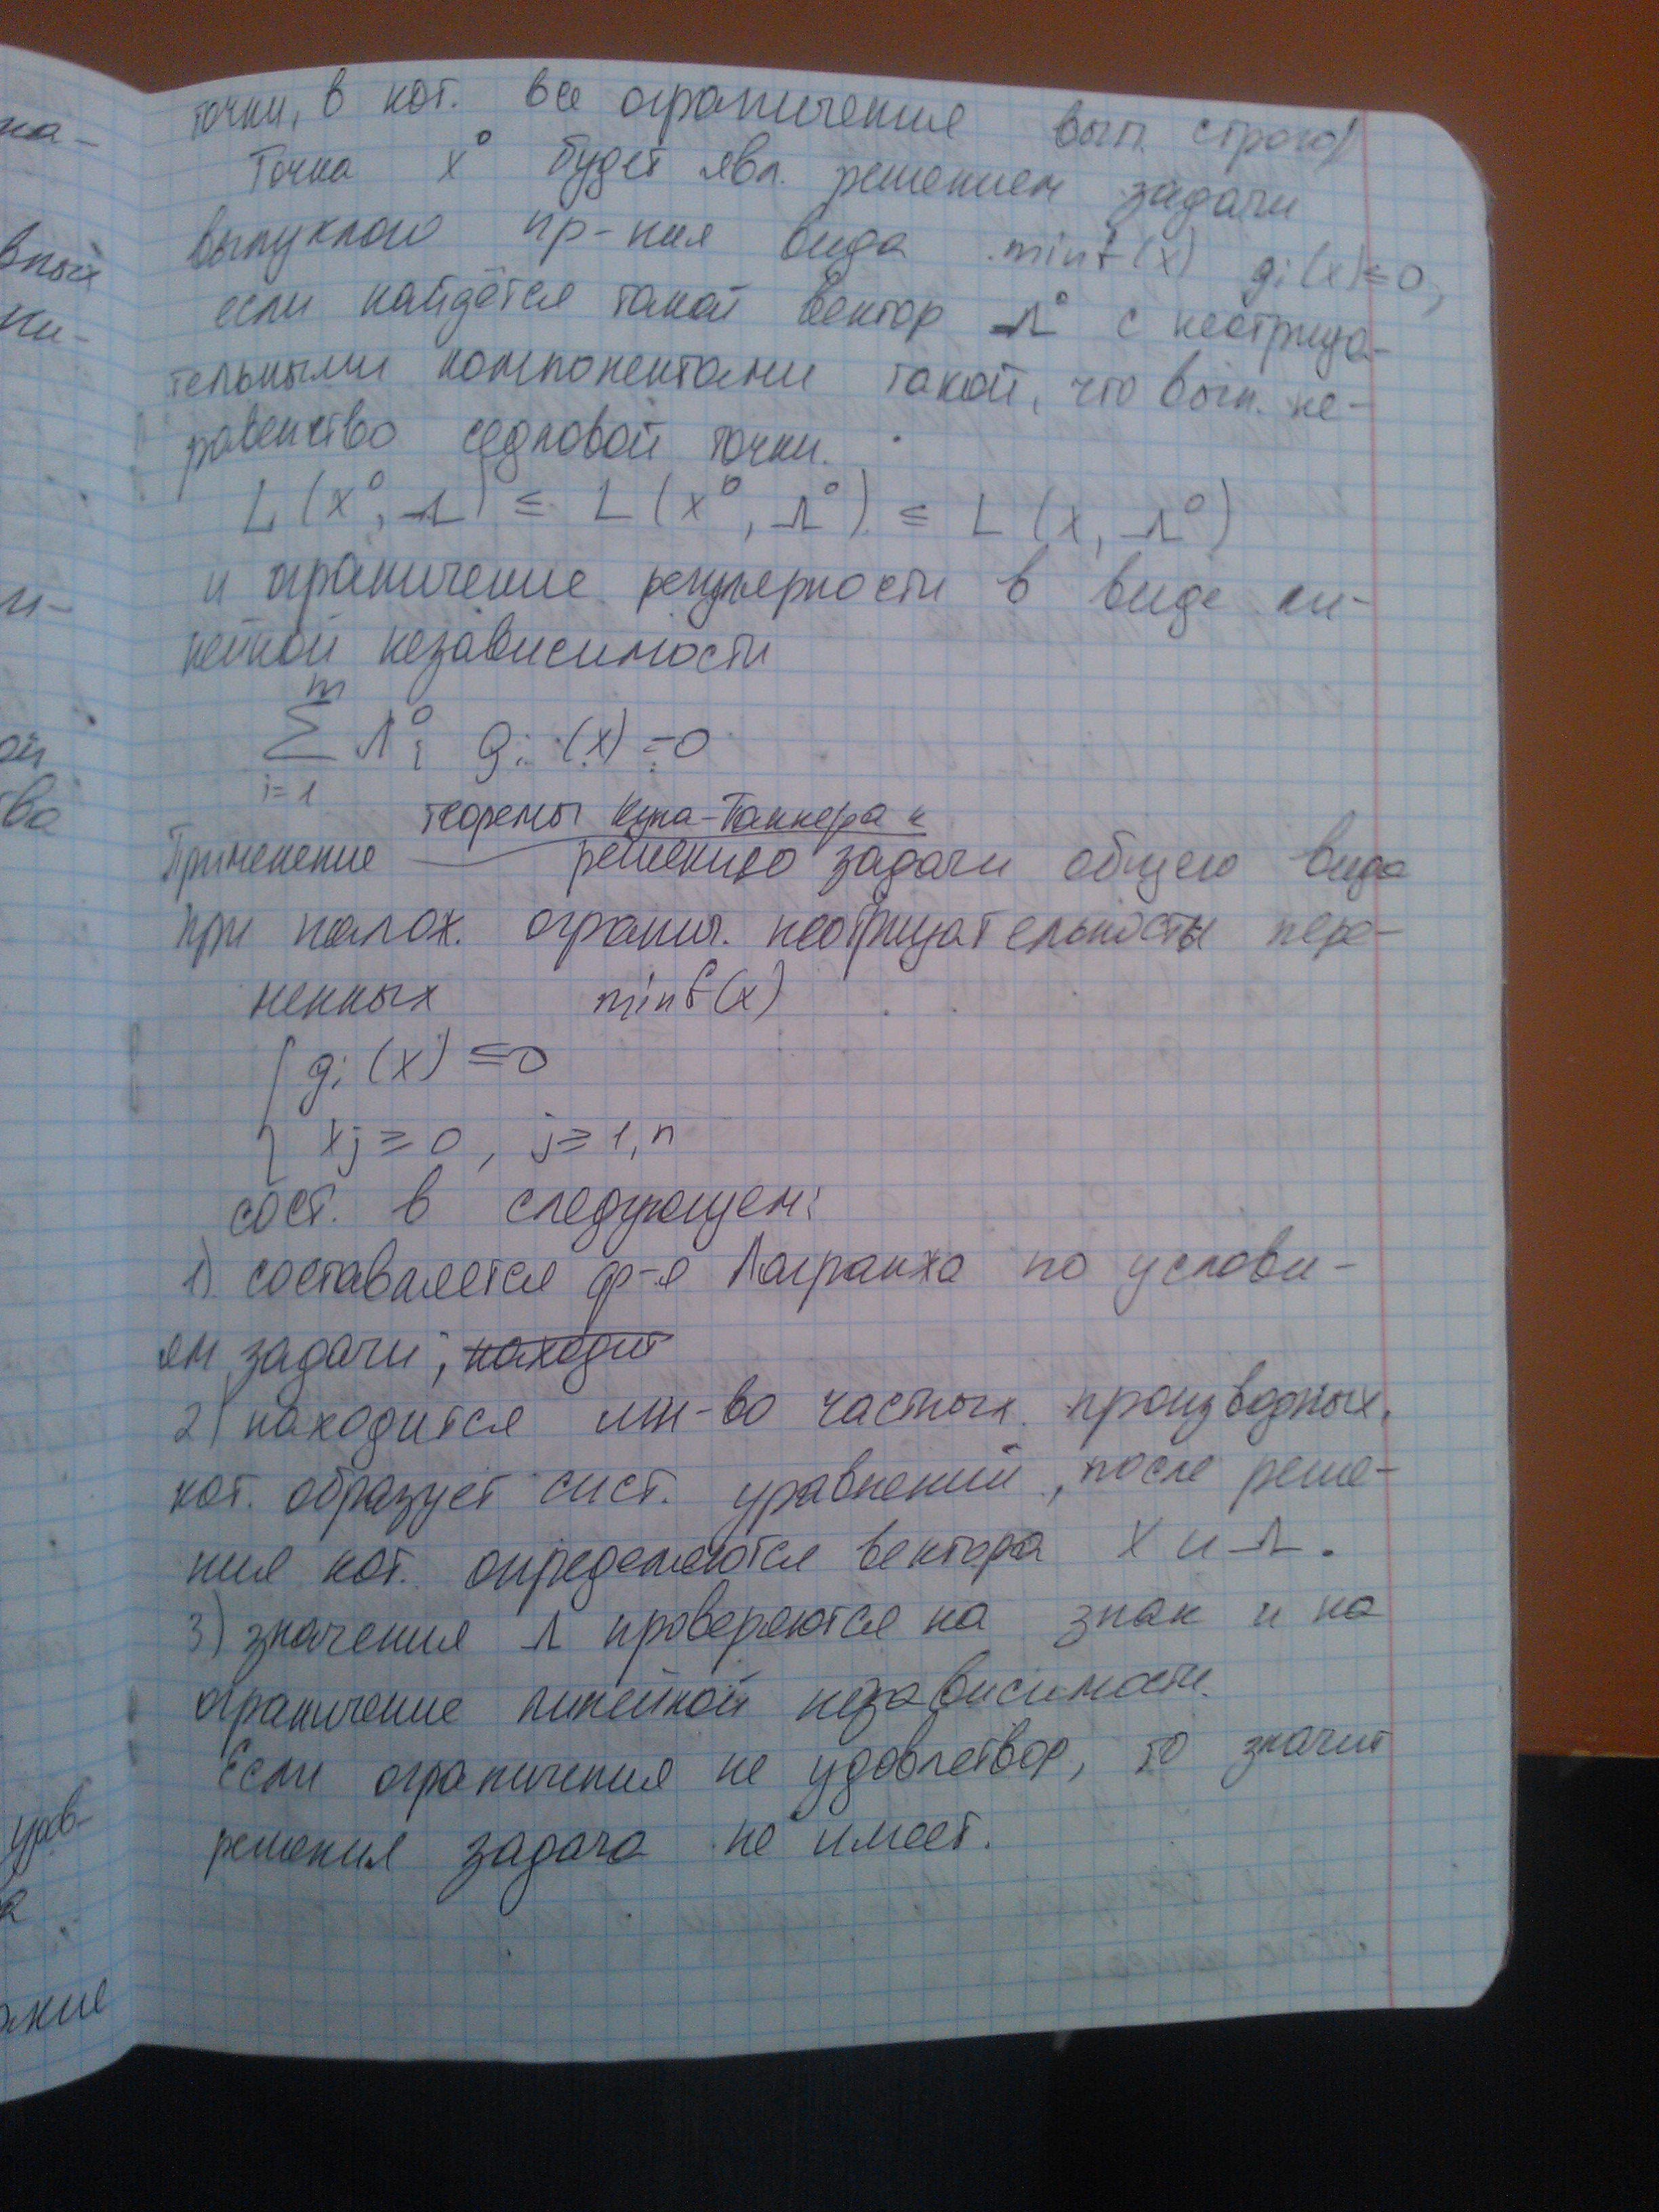 точки, в кот. все ограничения вып. строго)
Точка x⁰ будет явл. решением задачи
выпуклого пр-ния вида min f(x) gᵢ(x)≤0,
если найдётся такой вектор Λ⁰ с неотрица-
тельными компонентами такой, что вып. не-
равенство седловой точки.
L(x⁰, Λ) ≤ L(x⁰, Λ⁰) ≤ L(x, Λ⁰)
и ограничение регулярности в виде ли-
нейной независимости
m
∑ Λ⁰ᵢ gᵢ(x) = 0
i=1
теоремы Куна-Таккера к
Применение решению задачи общего вида
при налож. огранич. неотрицательносты пере-
менных min f(x)
{ gᵢ(x) ≤ 0
xj ≥ 0, j ≥ 1, n
сост. в следующем:
1) составляется ф-я Лагранжа по услови-
ям задачи; находит
2) находится мн-во частных производных,
кот. образует сист. уравнений, после реше-
ния кот. определяются вектора X и Λ.
3) значения Λ проверяются на знак и на
ограничение линейной независимости.
Если ограничения не удовлетвор, то значит
решения задача не имеет.
на-
вных
ни-
и-
ой
тва
урав-
ание